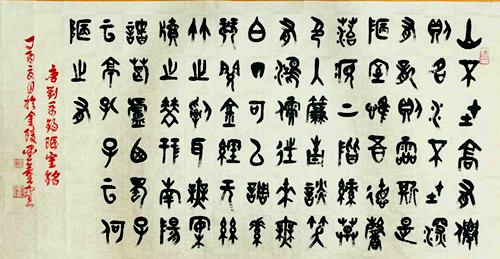 山不在高有僊
則名水不在深
有龍則靈斯是
陋室惟吾德馨
苔痕上階綠草
色入簾青談笑
有鴻儒往來無
白丁可以調素
琴閱金經无絲
竹之亂耳無案
牘之勞形南陽
諸葛廬西蜀子
云亭孔子云何
陋之有
唐劉禹錫陋室銘
丁酉夏月於金陵